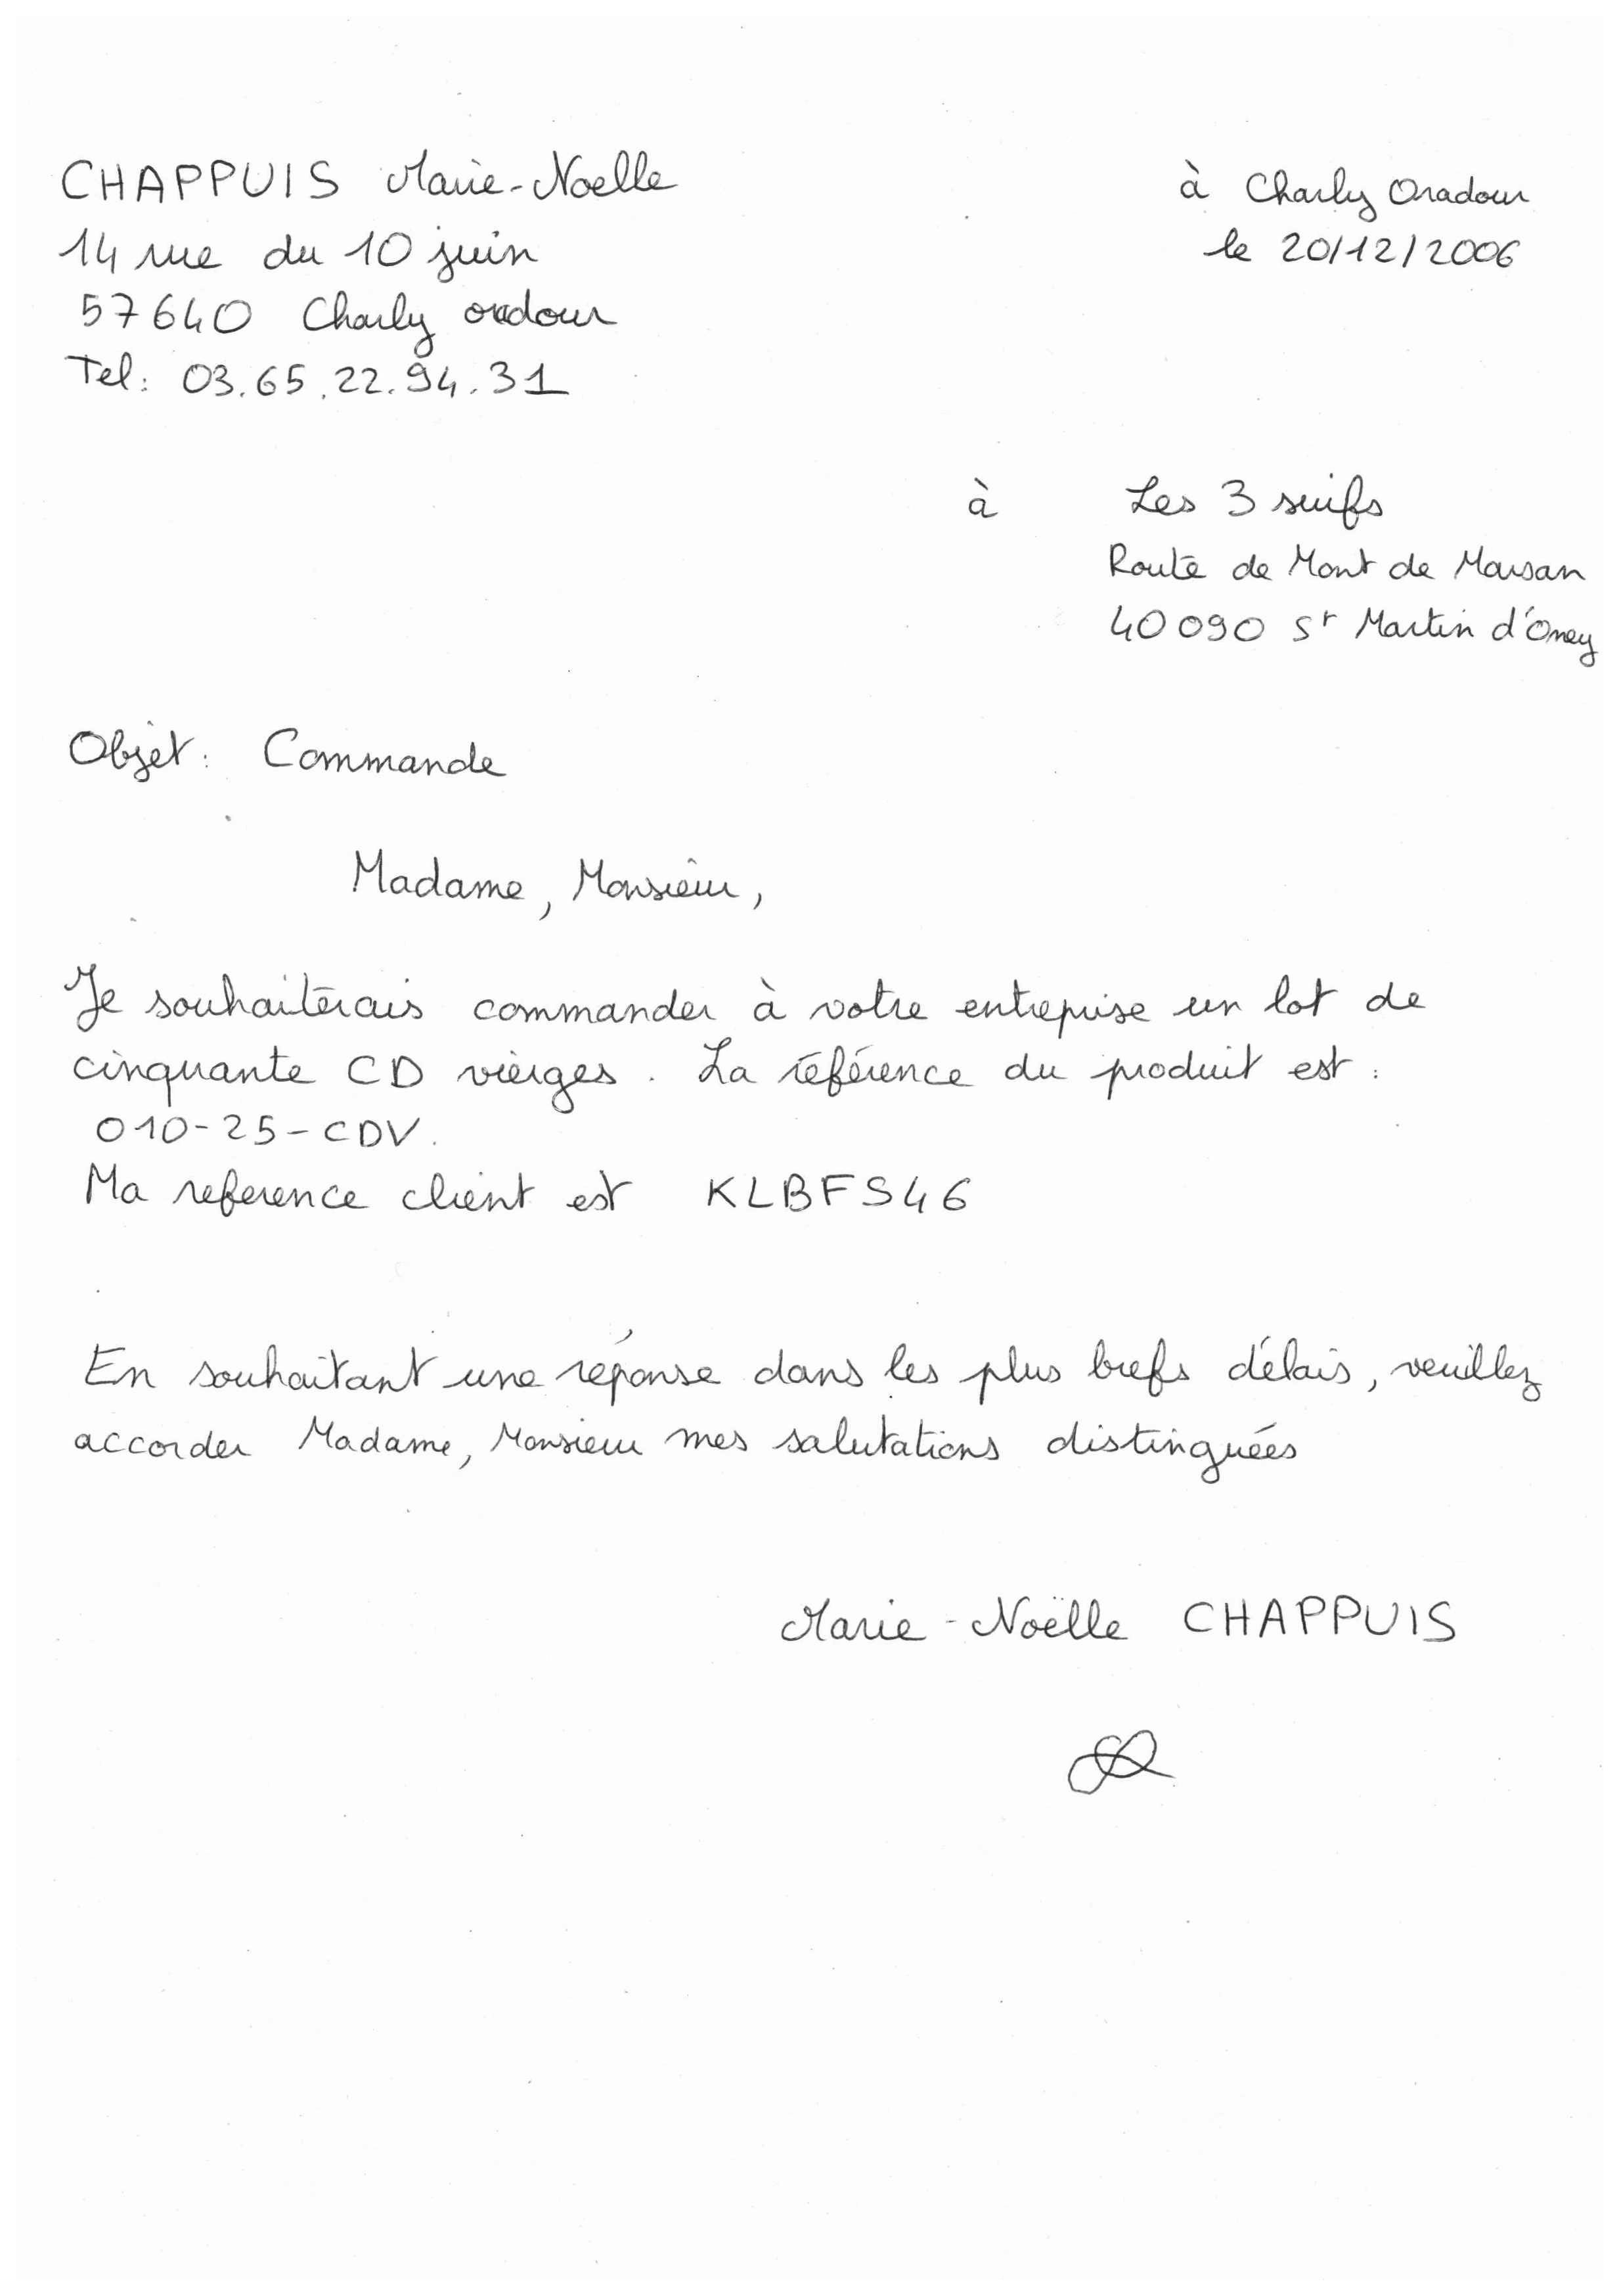 CHAPPUIS Marie-Noelle
14 rue du 10 juin
57640 Charly oradour
Tel: 03.65.22.94.31
à Charly Oradour
le 20/12/2006
à Les 3 suifs
Route de Mont de Marsan
40090 St Martin d'Oney
Objet: Commande
Madame, Monsieur,
Je souhaiterais commander à votre entreprise un lot de
cinquante CD vierges. La référence du produit est :
010-25-CDV.
Ma reference client est KLBFS46
En souhaitant une réponse dans les plus brefs délais, veuillez
accorder Madame, Monsieur mes salutations distinguées
Marie-Noëlle CHAPPUIS